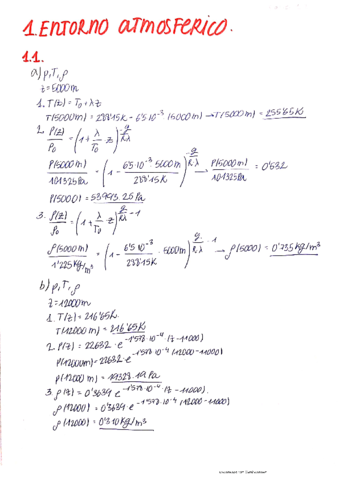 1. ENTORNO ATMOSFERICO.
1.1.
a) p, T, ρ
z=5000m
1. T(z) = T₀ + λz
T(5000m) = 288'15K - 6'5·10⁻³ (5000m) → T(5000m) = 255'65K
2. P(z)/P₀ = (1 + λ/T₀ z)^(-g/Rλ)
P(5000m)/101325Pa = (1 - 6'5·10⁻³ 5000m/288'15K)^(-g/Rλ) → P(5000m)/101325Pa = 0'532
P(5000) = 53943.25Pa
3. ρ(z)/ρ₀ = (1 + λ/T₀ z)^(-g/Rλ - 1)
ρ(5000m)/1'225kg/m³ = (1 - 6'5·10⁻³/288'15K · 5000m)^(-g/Rλ - 1) → ρ(5000) = 0'735kg/m³
b) p, T, ρ
z=12000m
1. T(z) = 216'65K.
T(12000m) = 216'65K
2. P(z) = 22632 · e^(-1'578·10⁻⁴ (z-11000))
P(12000m) = 22632 · e^(-1'578·10⁻⁴ (12000-11000))
P(12000m) = 19328.19Pa
3. ρ(z) = 0'3639 e^(-1'578·10⁻⁴ (z-11000))
ρ(12000) = 0'3639 e^(-1'578·10⁻⁴ (12000-11000))
ρ(12000) = 0'310kg/m³